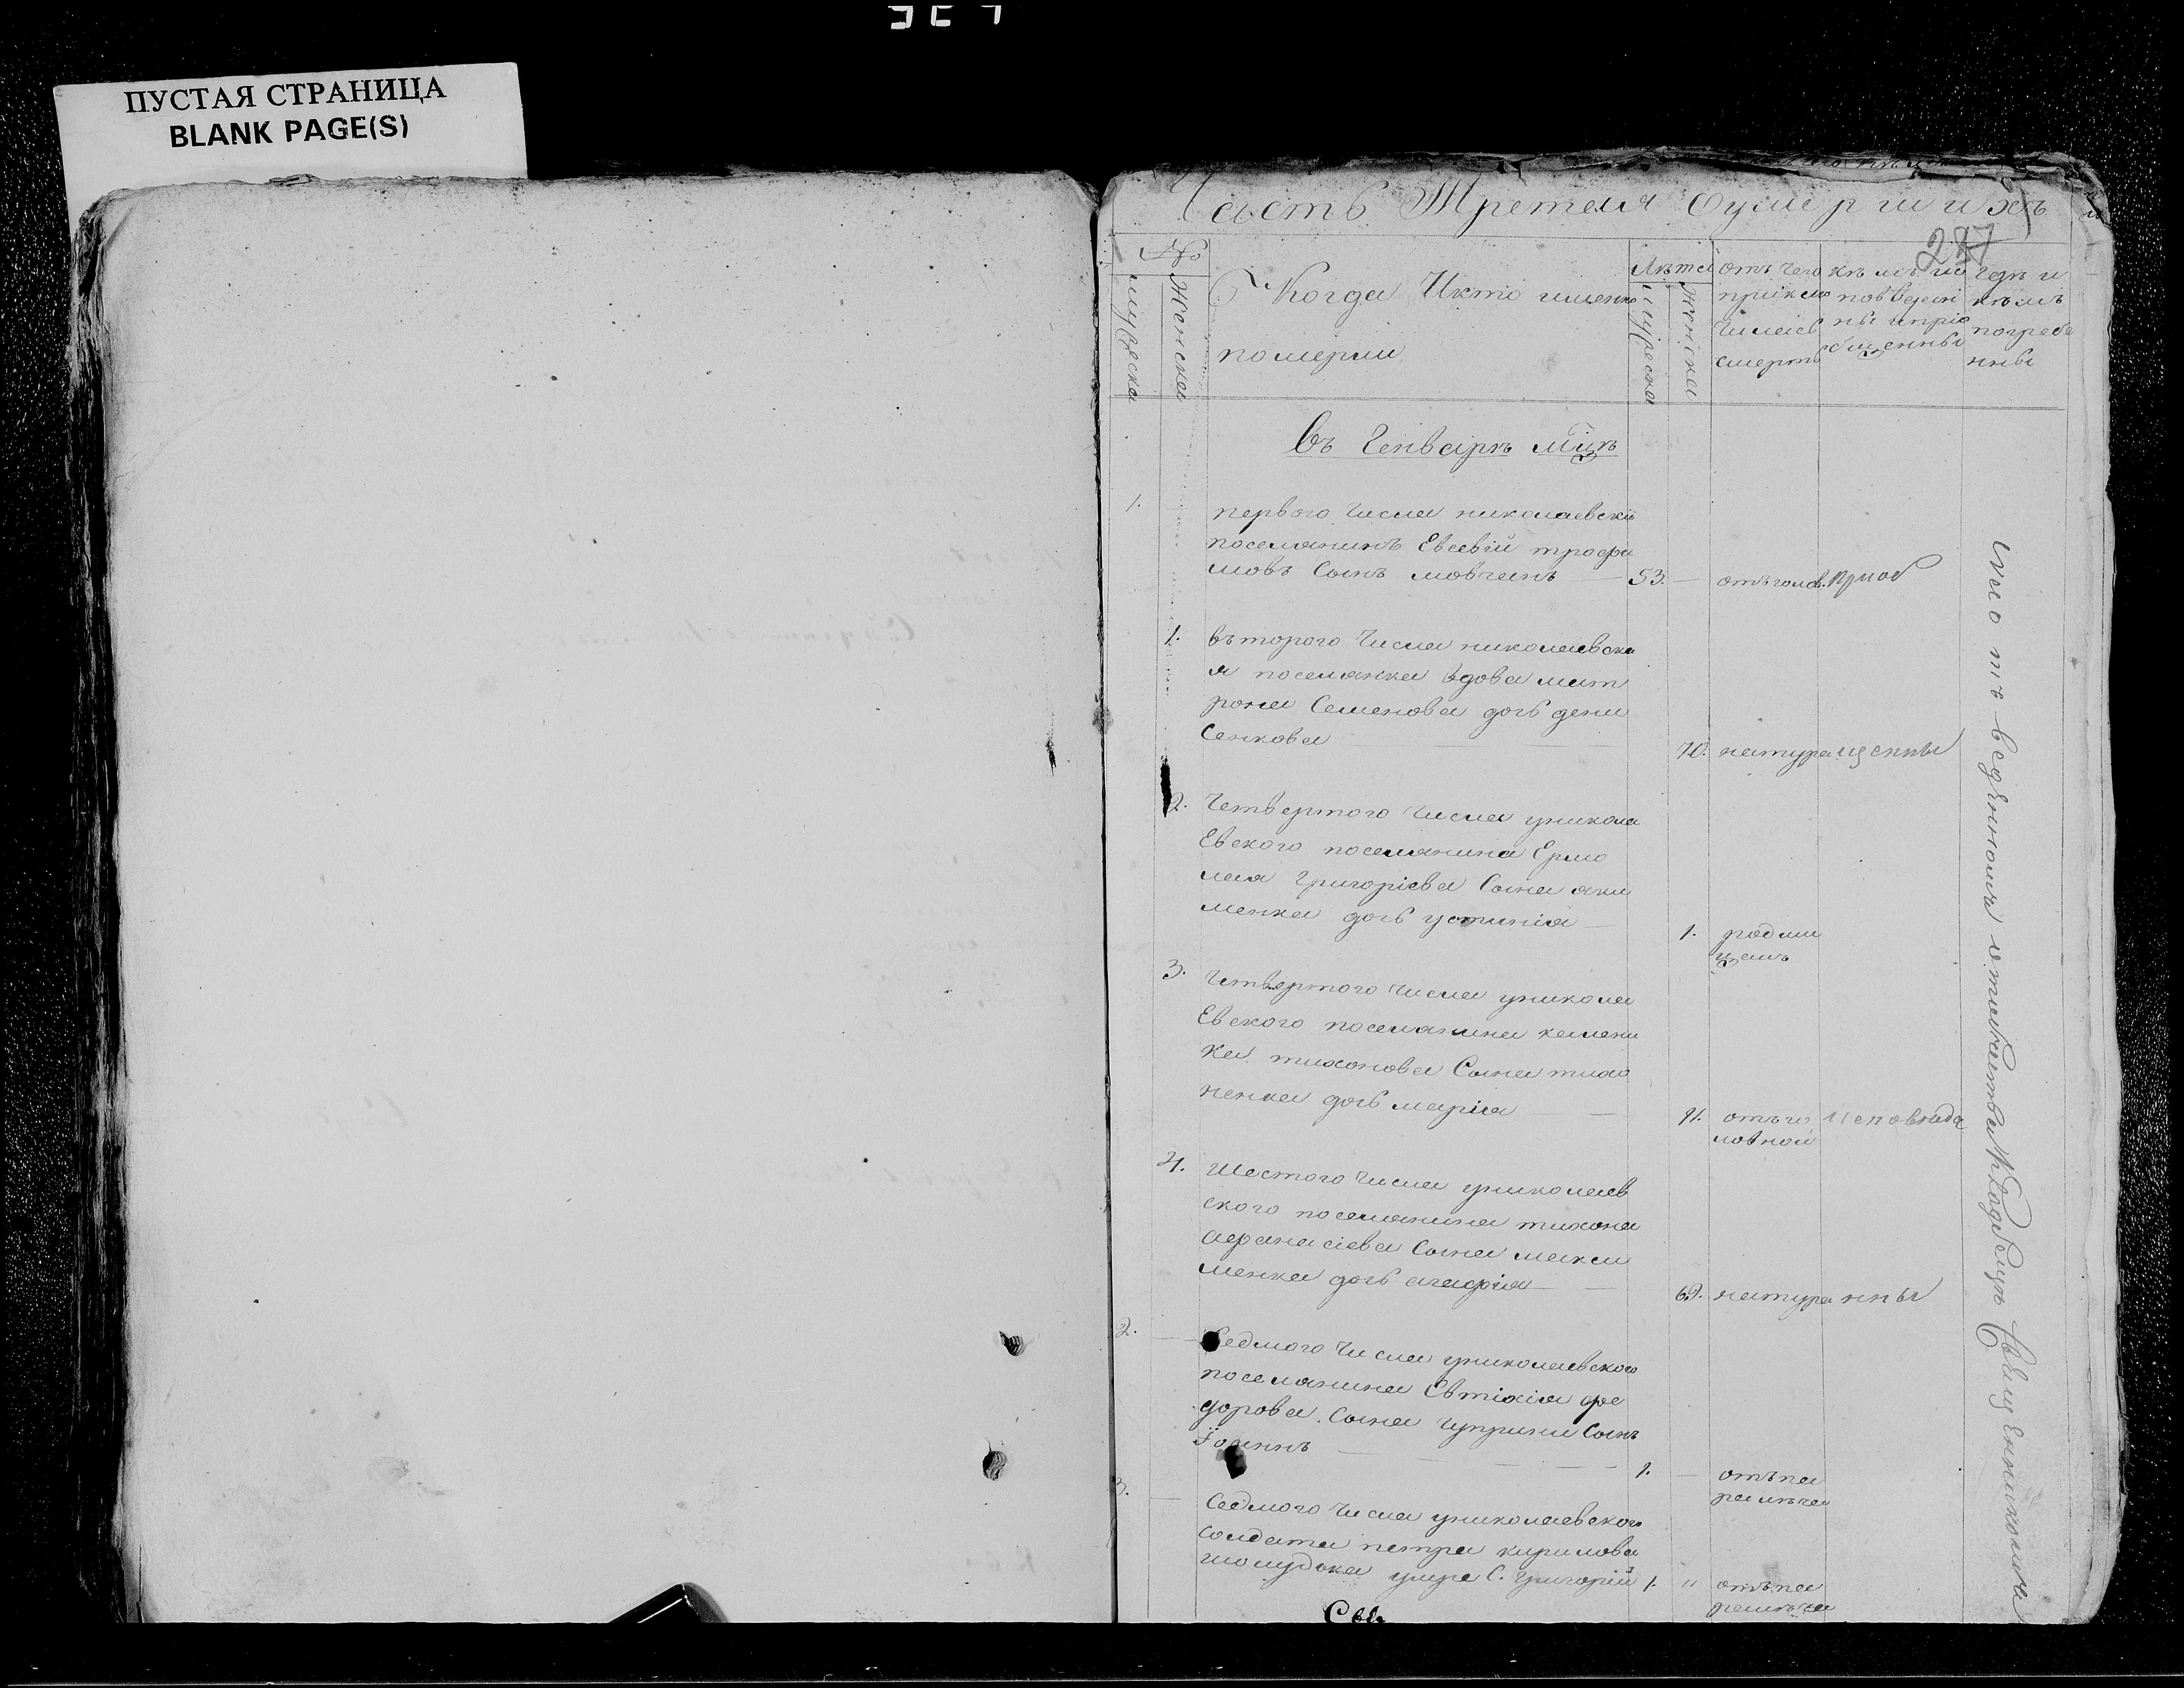 ПУСТАЯ СТРАНИЦА
BLANK PAGE(S)
Часть Третея Оумершихъ
287
№
мужеска
Женска
Когда Икто именно
померли
Лѣта
мужеска
женска
отъ чего
приклю
чилась
смерть
кѣмъ ис
поведан
ны ипріо
бщенны
гдѣ и
кѣмъ
погребе
нны
Въ Генварѣ мцѣ
1. первого числа николаевскій
поселянинъ Евсевій трофи
мовъ Сынъ мовчанъ 53. отъ голов. Приоб
1. второго числа николаевска
я поселянка вдова мат
рона Семенова дочь дени
сенкова 70. натура щенны
2. Четвертого числа уникола
Евского поселянина Ермо
лая Григоріева Сына аки
менка дочь устинія 1. родим
цемъ
3. Четвертого числа уникола
Евского поселянина
ка тихонова Сына тихо
ненка дочь марія отъ го Исповѣда
ловной
4. Шестого числа униколаев
ского поселянина тихона
афанасіева Сына макси
менка дочь агафія 69. натура нны
2. Седмого числа униколаевского
поселянина Евтихія фе
дорова Сына чуприни Сынъ
Іоаннъ 1. отъ па
ралича
3. Седмого числа униколаевского
солдата петра кирилова
шолудька умре С. Григорій 1. " отъ па
ралича
Свя